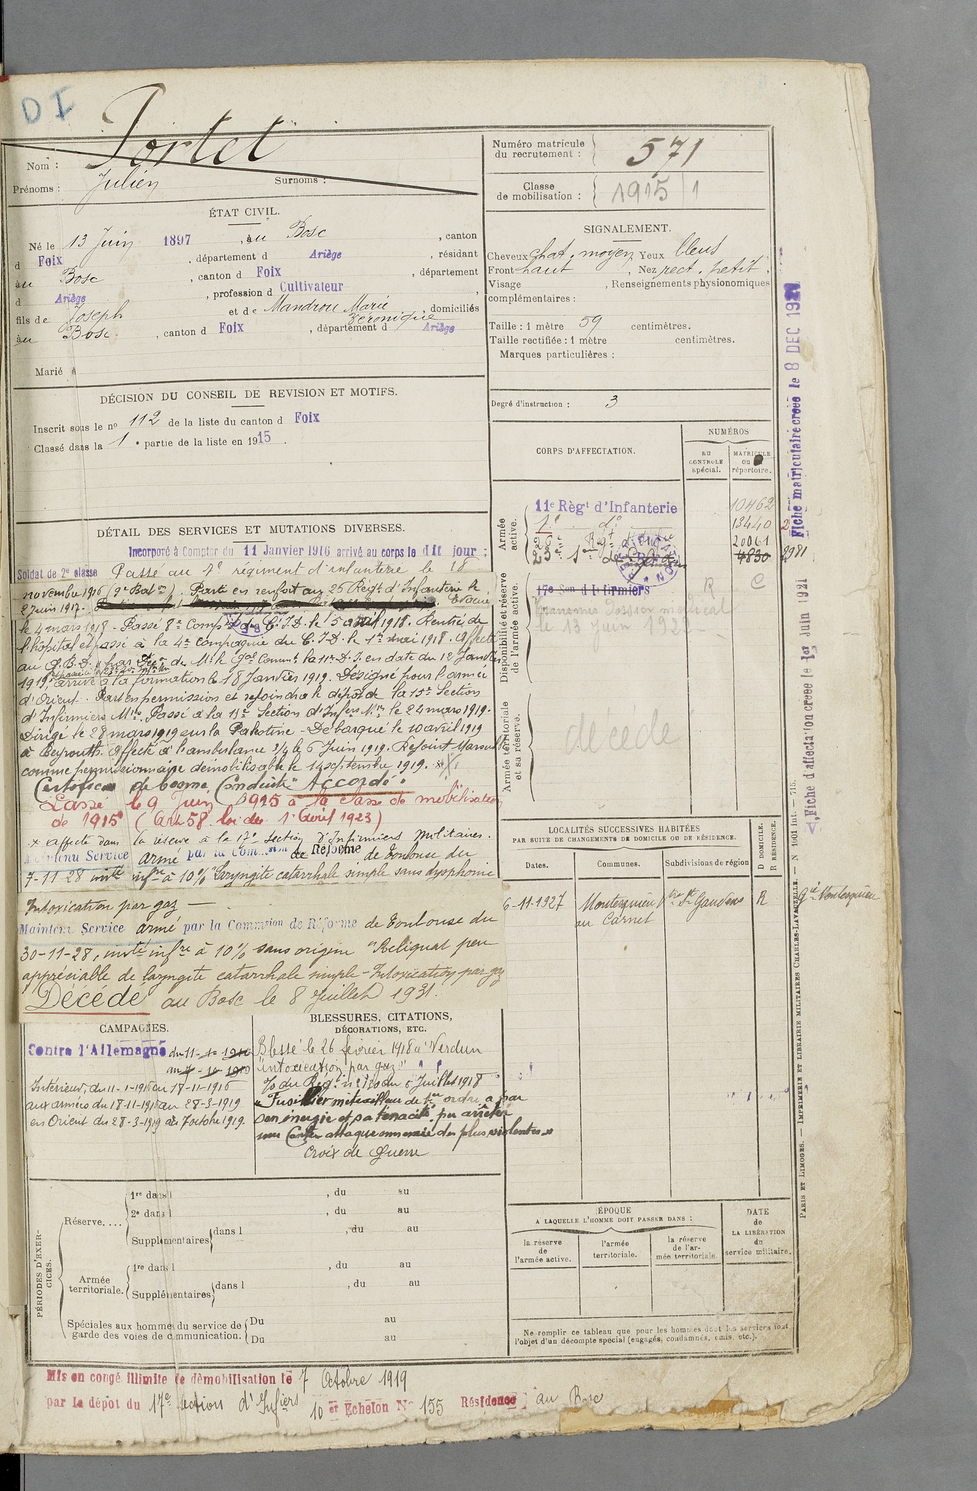 DI
Nom : Portet
Prénoms : Julien Surnoms :
Numéro matricule du recrutement : 571
Classe de mobilisation : 1915 1
ÉTAT CIVIL.
Né le 13 Juin 1897, au Bosc, canton
d Foix, département d Ariège, résidant
au Bosc, canton d Foix, département
d Ariège, profession d Cultivateur
fils de Joseph et de Mandrou Marie Véronique, domiciliés
au Bosc, canton d Foix, département d Ariège
Marié à
SIGNALEMENT.
Cheveux chat. moyen, Yeux bleus
Front haut, Nez rect. petit.
Visage , Renseignements physionomiques
complémentaires :
Taille : 1 mètre 59 centimètres.
Taille rectifiée : 1 mètre centimètres.
Marques particulières :
Degré d'instruction : 3
DÉCISION DU CONSEIL DE REVISION ET MOTIFS.
Inscrit sous le n° 112 de la liste du canton d Foix
Classé dans la 1e partie de la liste en 1915.
CORPS D'AFFECTATION.
NUMÉROS
AU CONTROLE spécial.
MATRICULE OU répertoire.
Armée active.
11e Régt d'Infanterie 10462
1er do 13440
20061
4830 2981
Disponibilité et réserve de l'armée active.
17e Son d'Infirmiers R C
dossier médical
le 13 Juin
Armée territoriale et sa réserve.
décédé
DÉTAIL DES SERVICES ET MUTATIONS DIVERSES.
Incorporé à Compter du 11 Janvier 1916 arrivé au corps le dit jour :
Soldat de 2e classe Passé au 1er régiment d'infanterie le 18
novembre 1916 (9e Baton). Parti en renfort au 26 Régt d'Infanterie le
2 Juin 1917. Evacué
le 4 mars 1918. Passé 8e Comp. C.I.D. le 15 avril 1918. Rentré de
l'hôpital et passé à la 4e Compagnie du C.I.D. le 1er mai 1918. Affecté
au G.B.D. par de Mr le Gal Commt la 11e D.I. en date du 12 Janvier
1919, arrivé à la formation le 18 Janvier 1919. Désigné pour l'armée
d'Orient. Part en permission et rejoindra le dépôt de la 15e Section
d'Infirmiers Mres. Passé à la 15e Section d'Infirs Mres le 24 mars 1919.
Dirigé le 28 mars 1919 sur la Palestine. Débarqué le 10 avril 1919
à Beyrouth. Affecté à l'ambulance 3/4 le 6 Juin 1919. Rejoint Marseille
comme permissionnaire démobilisable le 14 septembre 1919.
Certificat de bonne Conduite "Accordé"
Passé le 9 Juin 1925 à la classe de mobilisation
de 1915 (Art 58 loi du 1er Avril 1923)
x affecté dans la réserve à la 17e Section d'Infirmiers Militaires.
Maintenu Service armé par la Comon de Réforme de Toulouse du
7-11-28 invte infre à 10% "Laryngite catarrhale simple sans dysphonie
Intoxication par gaz —
Maintenu Service armé par la Commission de Réforme de Toulouse du
30-11-28, invte infre à 10% sans origine "Reliquat peu
appréciable de laryngite catarrhale simple - Intoxication par gaz
Décédé au Bosc le 8 Juillet 1931.
LOCALITÉS SUCCESSIVES HABITÉES
PAR SUITE DE CHANGEMENTS DE DOMICILE OU DE RÉSIDENCE.
Dates. Communes. Subdivisions de région D DOMICILE. R RÉSIDENCE.
6-11-1927 Montesquieu St Gaudens R Gie Montesquieu
CAMPAGNES.
Contre l'Allemagne du 11-1-1916
Intérieur, du 11-1-1916 au 17-11-1916
aux armées du 18-11-1916 au 28-3-1919
en Orient du 28-3-1919 au 7 octobre 1919.
BLESSURES, CITATIONS,
DÉCORATIONS, ETC.
Blessé le 26 février 1918 à Verdun
"intoxication par gaz"
O/ du Régt n° 226 du 5 Juillet 1918
"Fusilier mitrailleur de 1er ordre, a par
son énergie et sa ténacité pu arrêter
une Contre attaque ennemie des plus violentes"
Croix de Guerre
PÉRIODES D'EXERCICES.
Réserve....
1re dans l , du au
2e dans l , du au
Supplémentaires dans l , du au
Armée territoriale.
1re dans l , du au
Supplémentaires dans l , du au
Spéciales aux hommes du service de garde des voies de communication.
Du au
Du au
ÉPOQUE
A LAQUELLE L'HOMME DOIT PASSER DANS :
la réserve de l'armée active.
l'armée territoriale.
la réserve de l'armée territoriale.
DATE de LA LIBÉRATION du service militaire.
Ne remplir ce tableau que pour les hommes dont les services font
l'objet d'un décompte spécial (engagés, condamnés, omis, etc.).
Mis en congé illimité de démobilisation le 7 Octobre 1919
par le dépôt du 17e Sections d'Infiers 10e Échelon N° 155 Résidence au Bosc
Fiche matriculaire créée le 8 DEC 19
Fiche d'affectation créée le 1er Juin 1931
PARIS ET LIMOGES. — IMPRIMERIE ET LIBRAIRIE MILITAIRES CHARLES-LAVAUZELLE. — N° 1001 Int. — 715.